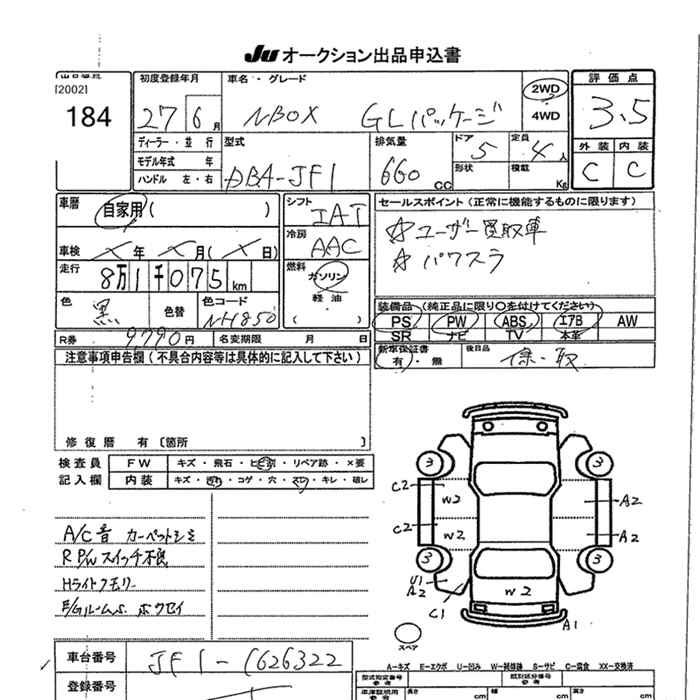 JU オークション出品申込書
出品番号
[2002]
184
初度登録年月
27 6 月
車名・グレード
NBOX GLパッケージ
2WD
4WD
評価点
3.5
ディーラー・並行
モデル年式 年
ハンドル 左・右
型式
DBA-JF1
排気量
660 CC
ドア 5
形状
定員 4 人
積載 Kg
外装 内装
C C
車歴
自家用 ( )
シフト
IAT
車検 年 月 ( 日)
冷房
AAC
走行
8万1千075 km
燃料
ガソリン
軽油
色
黒
色替
色コード
NH850
R券 9,790 円 名変期限 月 日
セールスポイント (正常に機能するものに限ります)
☆ユーザー買取車
☆パワスラ
装備品 (純正品に限り〇を付けてください)
PS PW ABS エアB AW
SR ナビ TV 本革
新車保証書
有・無
後日品
保・取
注意事項申告欄 (不具合内容等は具体的に記入して下さい)
修復歴 有 〔箇所 〕
検査員
記入欄
FW キズ・飛石・ヒビ割・リペア跡・×要
内装 キズ・汚れ・コゲ・穴・スレ・キレ・破レ
A/C音 カーペットシミ
R P/W スイッチ不良
Hライトクモリー
E/Gルームs ホウセイ
3 3
C2 W2 A2
C2 W2 A2
3 3
U1
A2
C1
W2
A1
スペア
車台番号
JF1-1626322
登録番号
A-キズ E-エクボ U-凹み W-補修跡 S-サビ C-腐食 XX-交換済
型式指定番号
参考
類別区分番号
参考
車庫証明用
参考
長さ cm
幅 cm
高さ cm